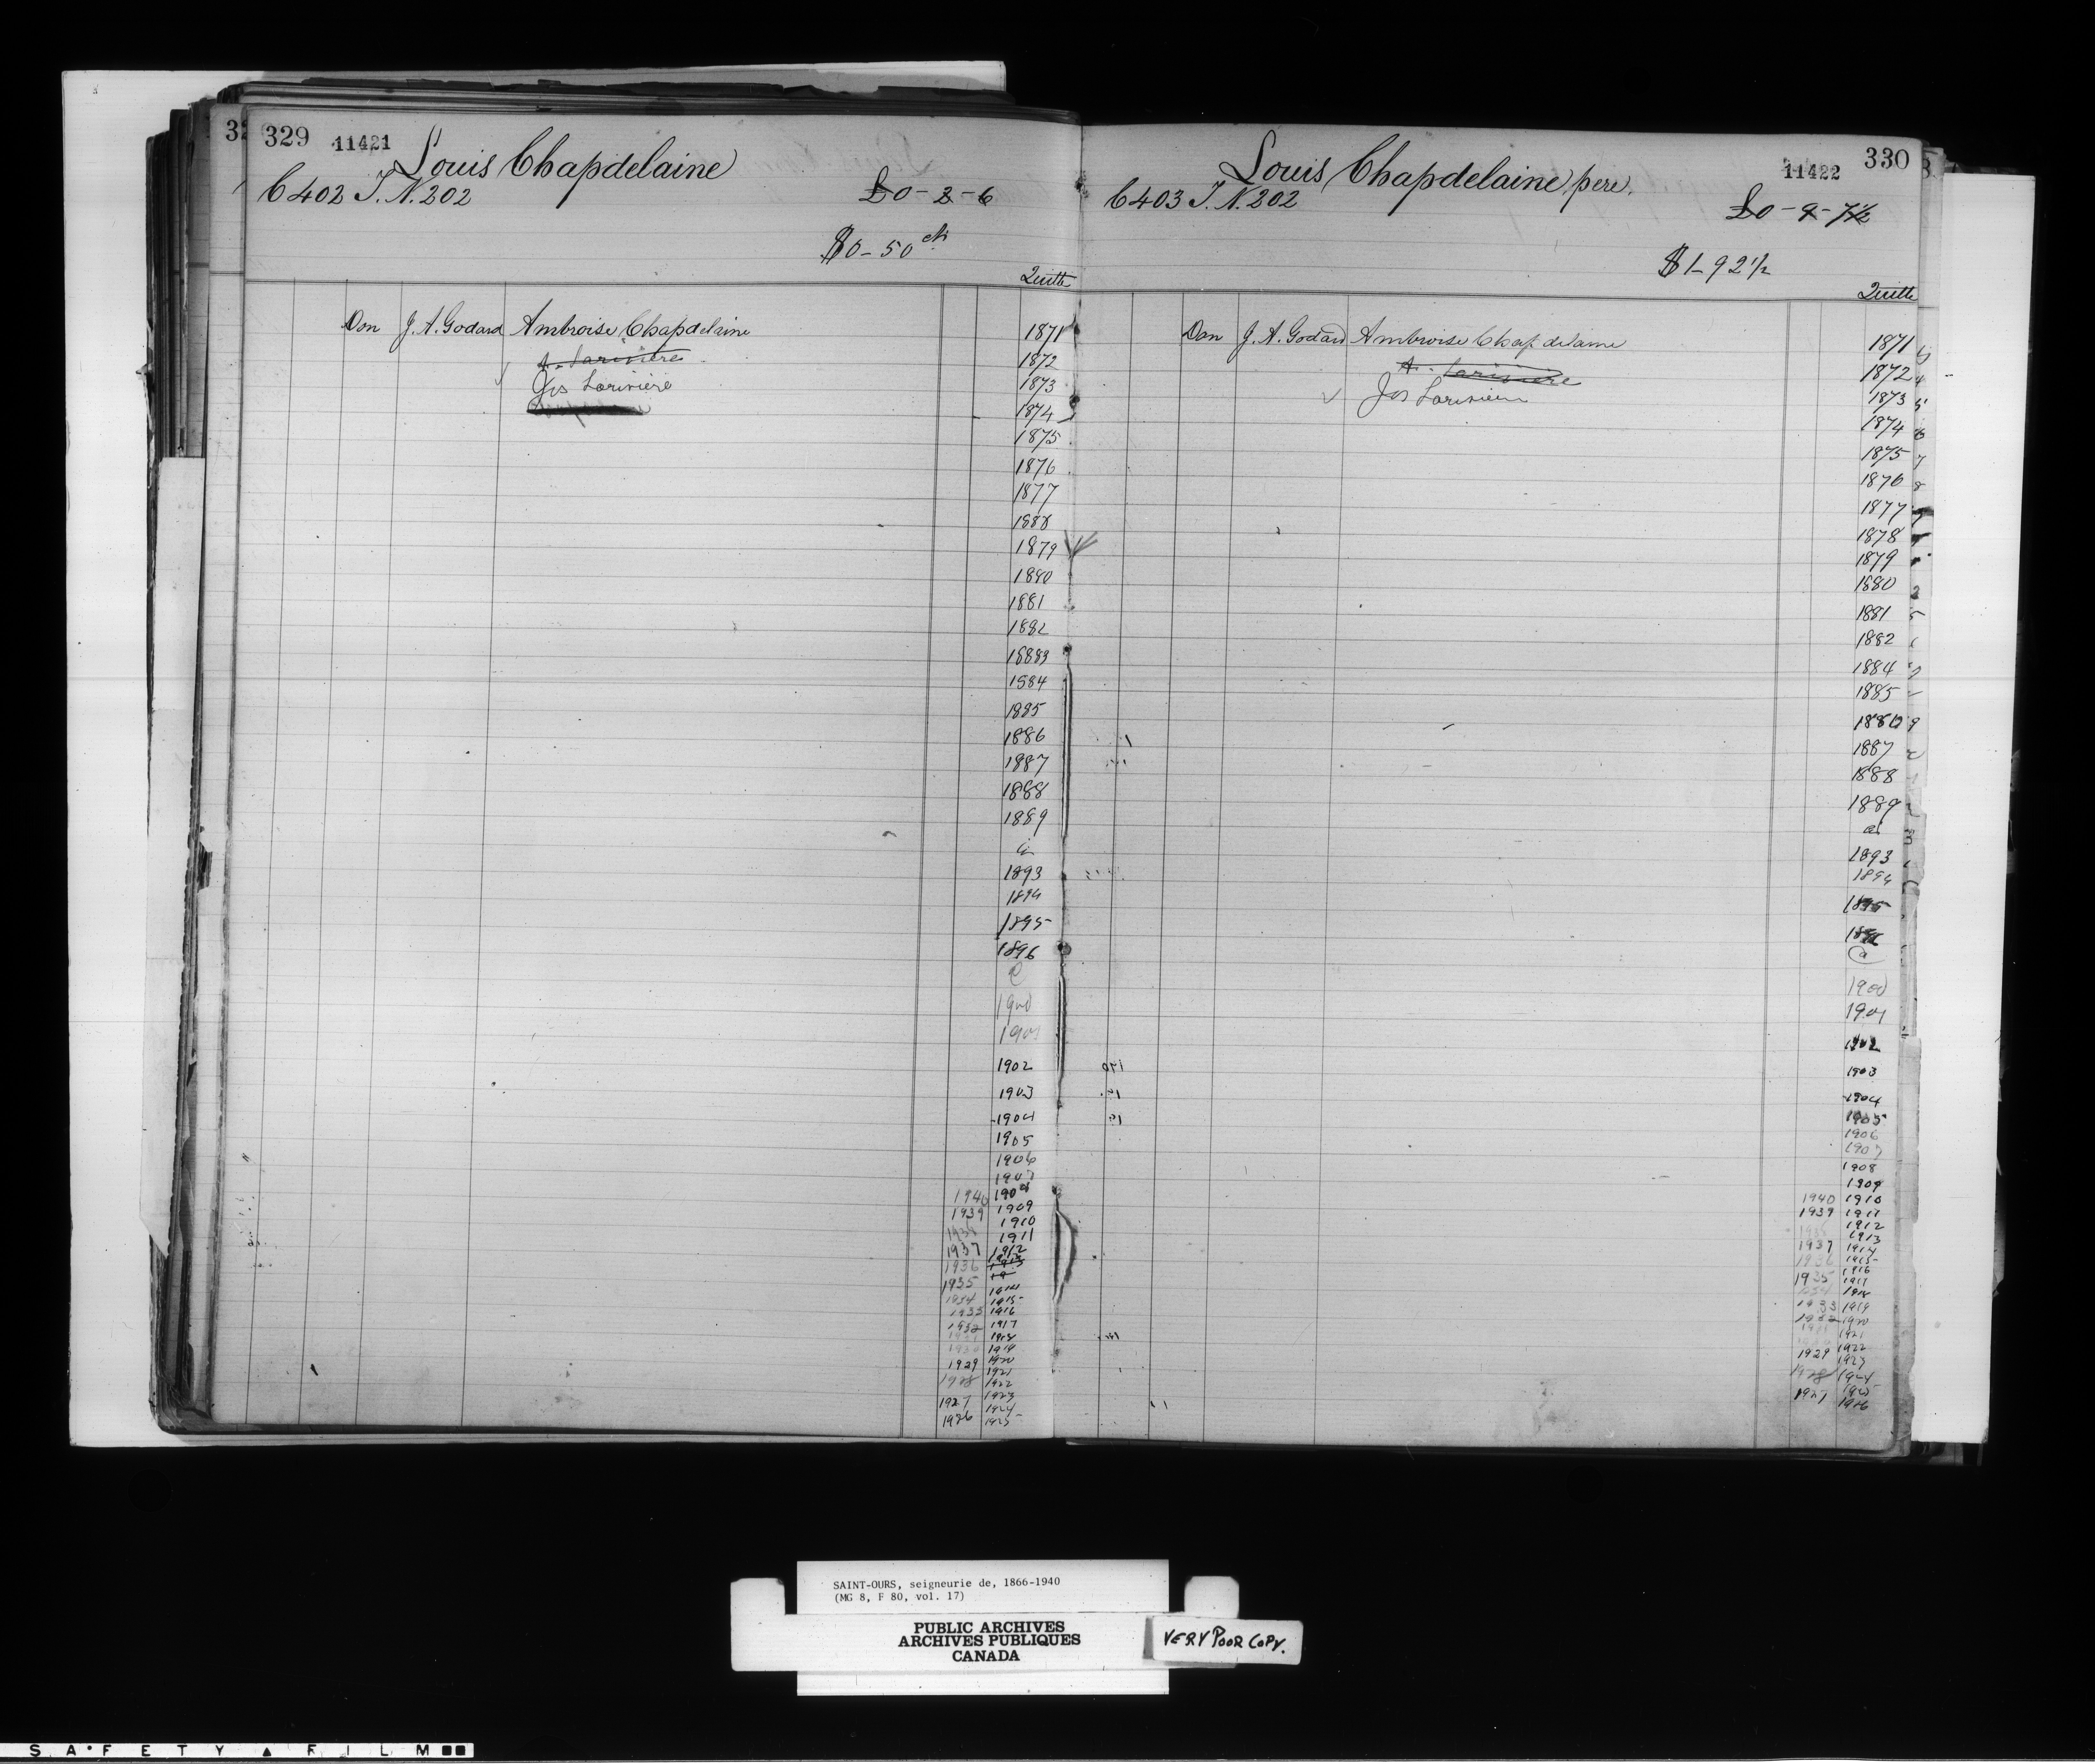 329 11421 Louis Chapdelaine
C 402 T. N. 202 £0-2-6
$0-50 cts
Quitte
Don J. A. Godard Ambroise Chapdelaine 1871
A. Lariviere 1872
Jos Lariviere 1873
1874
1875
1876
1877
1888
1879
1880
1881
1882
18883
1884
1885
1886
1887
1888
1889
a
1893
1894
1895
1896
1900
1901
1902
1903
1904
1905
1906
1907
1940 1908
1939 1909
1938 1910
1937 1911
1912
1936 1913
1935 19
1914
1934 1915
1933 1916
1932 1917
1918
1930 1919
1929 1920
1921
1928 1922
1927 1923
1924
1926 1925
Louis Chapdelaine, pere. 11422 330
C 403 T. N. 202 £0-9-7½
$1-92½
Quitte
Don J. A. Godard Ambroise Chapdelaine 1871
A. Lariviere 1872
Jos Lariviere 1873
1874
1875
1876
1877
1878
1879
1880
1881
1882
1884
1885
1886
1887
1888
1889
a
1893
1894
1895
1896
a
1900
1901
1902
1903
1904
1905
1906
1907
1908
1909
1940 1910
1939 1911
1912
1913
1937 1914
1936 1915
1916
1935 1917
1934 1918
1933 1919
1932 1920
1921
1922
1929 1923
1928 1924
1925
1927 1926
SAINT-OURS, seigneurie de, 1866-1940
(MG 8, F 80, vol. 17)
PUBLIC ARCHIVES
ARCHIVES PUBLIQUES
CANADA
VERY POOR COPY.
SAFETY FILM